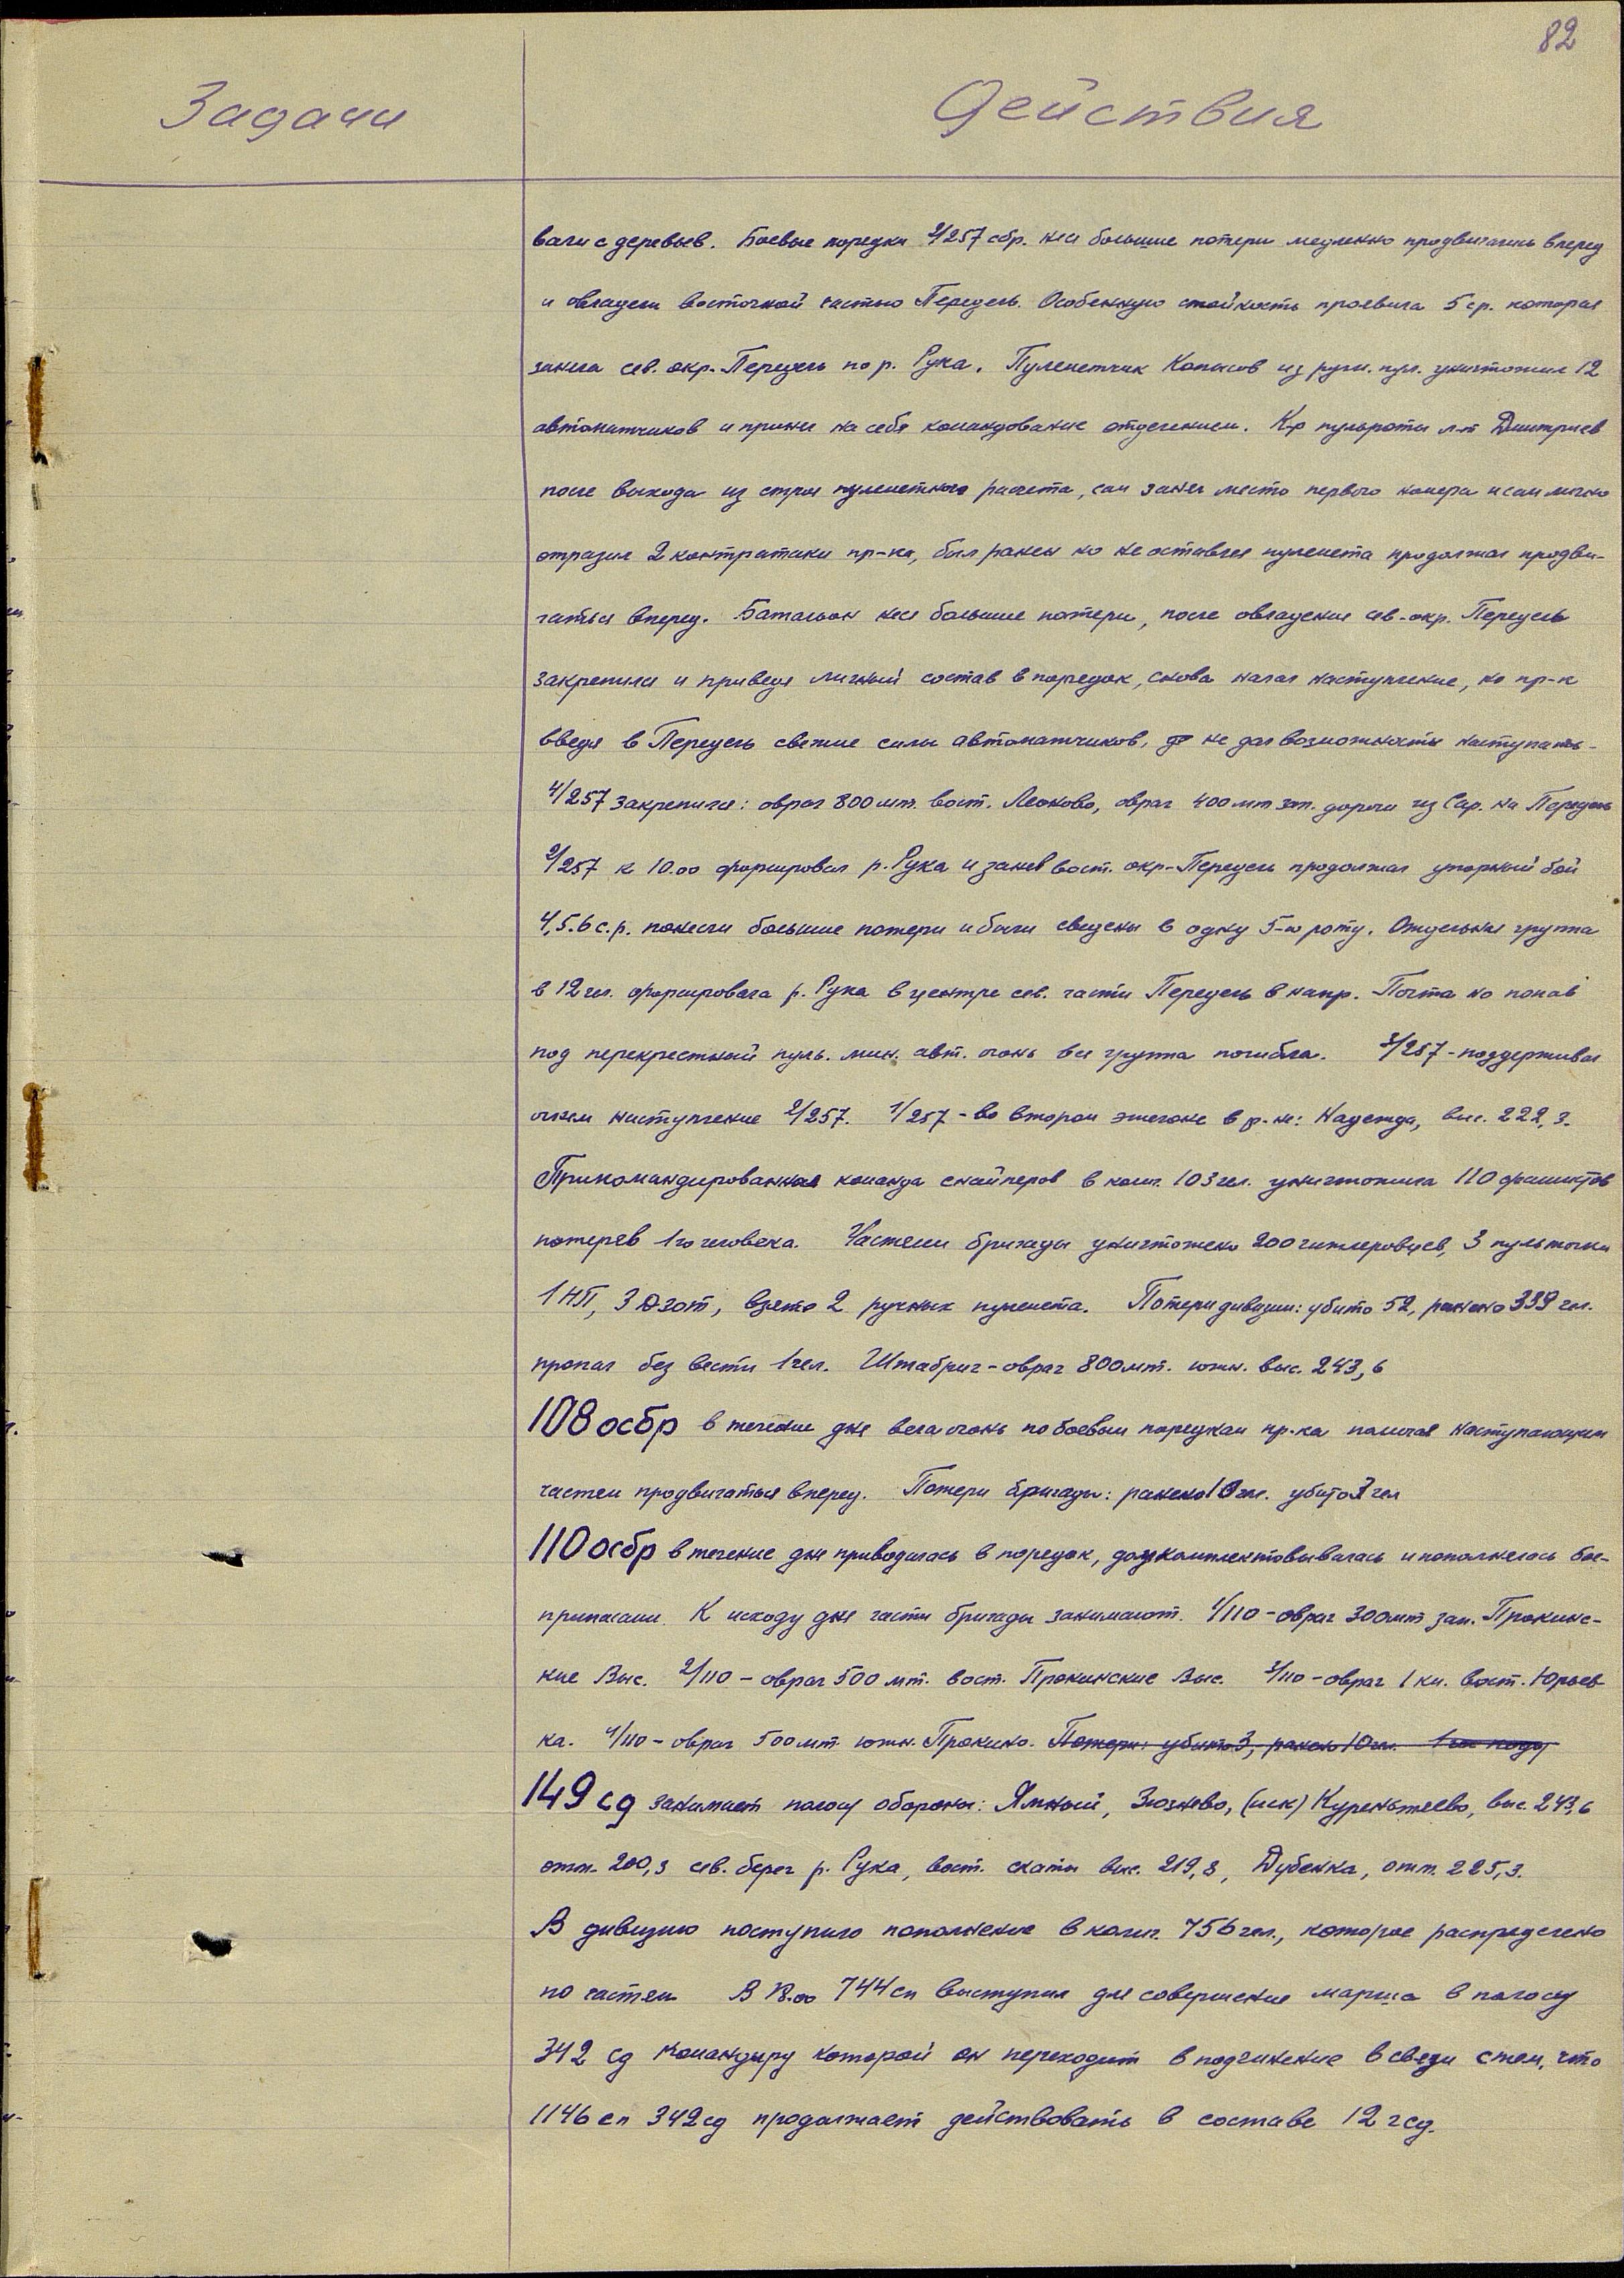 82
Задачи
Действия
вали с деревьев. Боевые порядки 2/257 сбр. неся большие потери медленно продвигались вперед
и овладели восточной частью Передель. Особенную стойкость проявила 5 ср. которая
заняла сев. окр. Передель по р. Рука. Пулеметчик из ручн. пул. уничтожил 12
автоматчиков и принял на себя командование отделением. К-р пульроты л-т Дмитриев
после выхода из строя пулеметного расчета, сам занял место первого номера и сам лично
отразил 2 контратаки пр-ка, был ранен но не оставляя пулемета продолжал продви-
гаться вперед. Батальон неся большие потери, после овладения сев-окр. Передель
закрепился и приведя личный состав в порядок, снова начал наступление, но пр-к
введя в Передель свежие силы автоматчиков, не дал возможности наступать-
4/257 закрепился: овраг 800 мт. вост. Леоново, овраг 400 мт зап. дороги из Сар. на Передель
2/257 к 10.00 форсировал р. Рука и заняв вост. окр-Передель продолжал упорный бой
4,5.6 с.р. понесли большие потери и были сведены в одну 5-ю роту. Отдельная группа
в 12 чел. форсировала р. Рука в центре сев. части Передель в напр. Почта но попав
под перекрестный пуль. мин. авт. огонь вся группа погибла. 3/257-поддерживал
огнем наступление 2/257. 1/257-во втором эшелоне в р-не: Надежда, выс. 222,3.
Прикомандированная команда снайперов в колич. 103 чел. уничтожила 110 фашистов
потеряв 1го человека. Частями бригады уничтожено 200 гитлеровцев, 3 пульточки
1 НП, 3 Дзот, взято 2 ручных пулемета. Потери дивизии: убито 52, ранено 339 чел.
пропал без вести 1 чел. Штабриг-овраг 800 мт. южн. выс. 243,6
108 осбр в течение дня вела огонь по боевым порядкам пр-ка помогая наступающим
частям продвигаться вперед. Потери бригады: ранено 10 чел. убито 3 чел
110 осбр в течение дня приводилась в порядок, доукомплектовывалась и пополнялась бое-
припасами. К исходу дня части бригады занимают. 1/110-овраг 300 мт зап. Прокинс-
кие Выс. 2/110-овраг 500 мт. вост. Прокинские Выс. 3/110-овраг 1 км. вост. Юрьев-
ка. 4/110-овраг 500 мт. южн. Прокино. Потери: убито 3, ранено 10 чел.
149 сд занимает полосу обороны: Ямный, Зюзнево, (иск) Куреньтеево, выс. 243,6
отм. 200,3 сев. берег р. Рука, вост. скаты выс. 219,8, Дубенка, отм. 225,3.
В дивизию поступило пополнение в колич. 756 чел., которое распределено
по частям В 18.00 744 сп выступил для совершения марша в полосу
342 сд командиру которой он переходит в подчинение в связи с тем, что
1146 сп 342 сд продолжает действовать в составе 12 гсд.